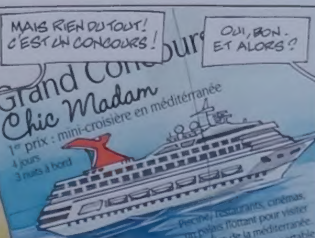 MAIS RIEN DU TOUT!
C'EST UN CONCOURS!
OUI, BON.
ET ALORS?
Grand Concours
Chic Madam
1er prix : mini-croisière en méditérranée
4 jours
3 nuits à bord
Piscine, restaurants, cinémas,
palais flottant pour visiter
de la méditerranée.